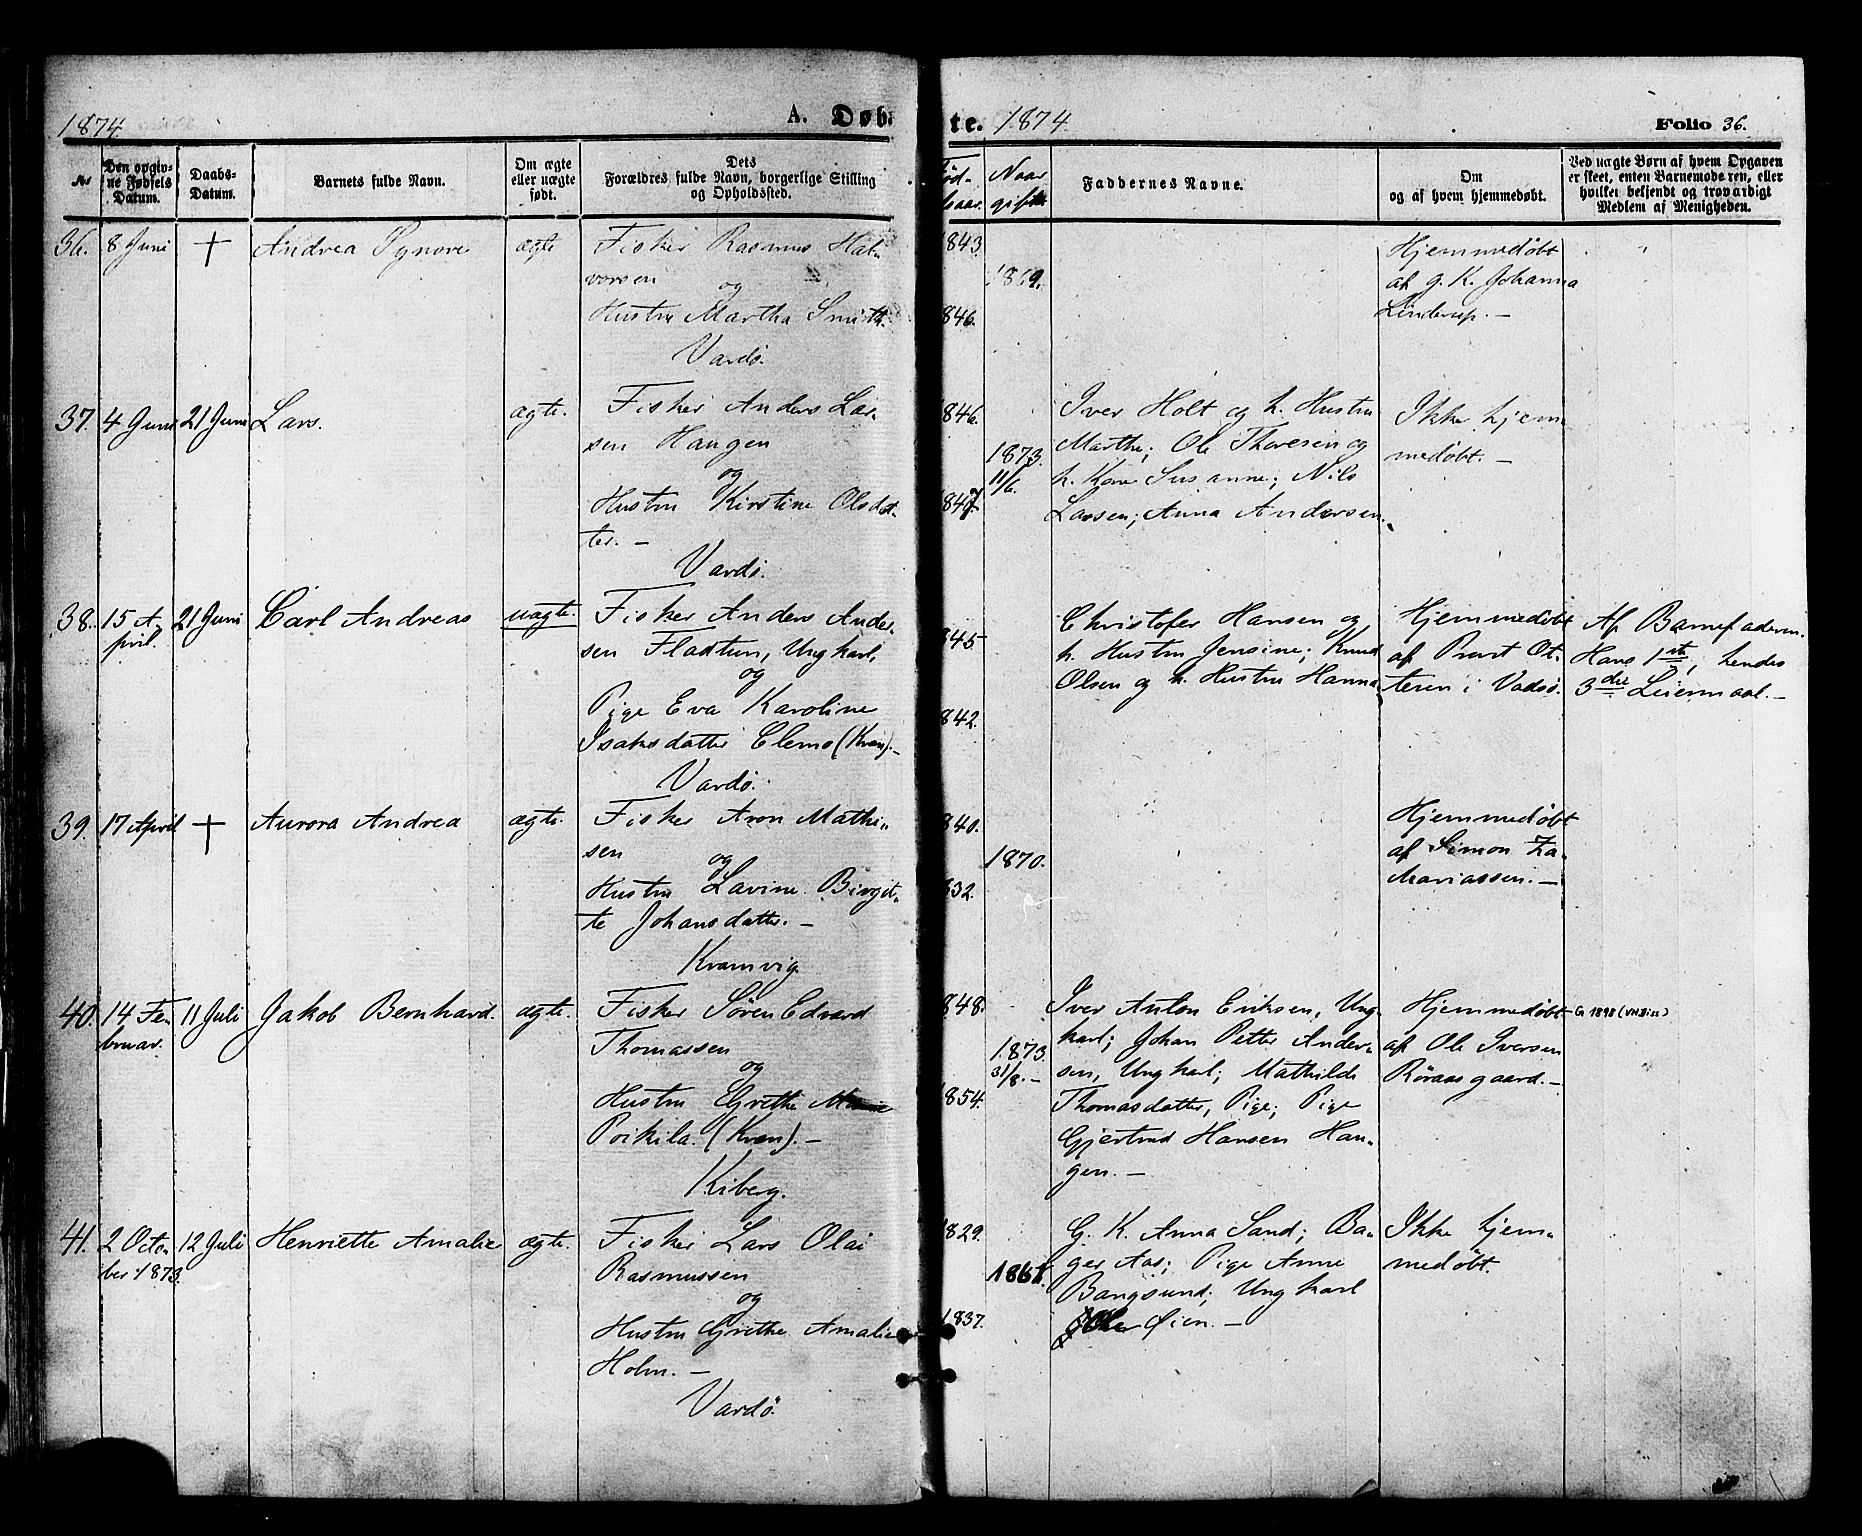 1874.
A. Døb-
te. 1874
Folio 36.
No
Den opgiv-
ne Fødsels
Datum.
Daabs-
Datum.
Barnets fulde Navn.
Om ægte
eller uægte
født.
Dets
Forældres fulde Navn, borgerlige Stilling
og Opholdssted.
Fød-
Naar
gift
Faddernes Navne.
Om
og af hvem hjemmedøbt.
Ved uægte Børn af hvem Opgaven
er skeet, enten Barnemoderen, eller
hvilket bekjendt og troværdigt
Medlem af Menigheden.
36. 8 Juni † Andrea ægte
Fisker Rasmus Hal-
vorsen
og
Hustru Martha Smith.
Vardö.
1843.
1869.
846.
Hjemmedøbt
af g. K. Johanna
Linderup. —
37. 4 Juni 21 Juni Lars. ægte.
Fisker Anders Lar-
sen Haugen
og
Hustru Kirstine Olsdat-
ter. —
Vardö.
1846.
1873.
11/6.
1847.
Iver Holt og h. Hustru
Marthe; Ole Thoresen og
h. Kone Susanne; Nils
Larsen; Anna Andersen.
Ikke hjem-
medøbt. —
38. 15 A-
pril. 21 Juni Carl Andreas uægte.
Fisker Anders Ander-
sen Fladtun, Ungkarl,
og
Pige Eva Karoline
Isaksdatter Clemo (Kvæn). —
Vardö.
845
842.
Christofer Hansen og
h. Hustru Jensine; Knud
Olsen og h. Hustru Hanna.
Hjemmedøbt
af Provst Ot-
teren i Vadsö.
Af Barnefaderen.
Hans 1ste, hendes
3die Leiermaal. —
39. 17 April † Aurora Andrea ægte.
Fisker Aron Mathi-
sen
og
Hustru Lavine Birgit-
te Johansdatter. —
Kramvig.
840.
1870.
832.
Hjemmedøbt
af Simon Za-
kariassen. —
40. 14 Fe-
bruar. 11 Juli Jakob Bernhard. ægte.
Fisker Sören Edvard
Thomassen
og
Hustru Grethe
Poikila. (Kvæn). —
Kiberg.
848.
1873
31/8. —
1854.
Iver Anton Eriksen, Ung-
karl; Johan Petter Ander-
sen, Ungkarl; Mathilde
Thomasdatter, Pige; Pige
Gjertrud Hansen Hau-
gen. —
Hjemmedøbt
af Ole Iversen
Röraasgaard. —
G 1898
41. 2 Octo-
ber 1873. 12 Juli Henriette Amalie ægte.
Fisker Lars Olai
Rasmussen
og
Hustru Grethe Amalie
Holm. —
Vardö.
1829.
1861.
1837.
G. K. Anna Sand; Ba-
ger Aas; Pige Anne
Bangsund; Ungkarl
Ole Øien. —
Ikke hjem-
medøbt.